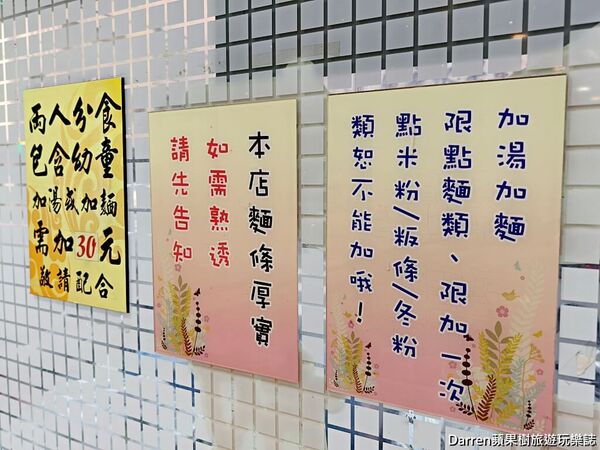 兩人分食
包含幼童
加湯或加麵
需加30元
敬請配合
本店麵條厚實
如需熟透
請先告知
加湯加麵
限點麵類、限加一次
點米粉/粄條/冬粉
類恕不能加哦!
Darren蘋果樹旅遊玩樂誌